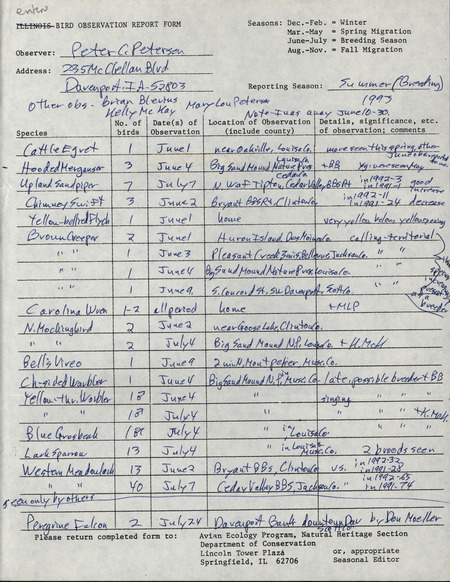 enter
ILLINOIS BIRD OBSERVATION REPORT FORM
Seasons: Dec.-Feb. = Winter
Mar.-May = Spring Migration
June-July = Breeding Season
Aug.-Nov. = Fall Migration
Observer: Peter C. Petersen
Address: 235 McClellan Blvd
Davenport IA 52803
Reporting Season: Summer (Breeding)
1993
Other obs - Brian Blevins Mary Lou Petersen
Kelly McKay Note - I was away June 10-30.
Species No. of birds Date(s) of Observation Location of Observation (include county) Details, significance, etc. of observation; comments
Cattle Egret 1 June 1 near Oakville, Louisa Co. more seen this spring, other
Hooded Merganser 3 June 4 Big Sound Mound Nature Pres. Louisa Co. + BB
Upland Sandpiper 7 July 7 N. W of Tipton, Cedar Valley BBS Rt in 1992-3 good
in 1991-1 increase
Chimney Swift 3 June 2 Bryant BBS Rt, Clinton Co. in 1992-11
in 1991-24 decrease
Yellow-bellied Flych 1 June 1 home very yellow below, yellow eyering
Brown Creeper 2 June 1 Huron Island, Des Moines Co. calling-territorial
" " 1 June 3 Pleasant Creek, 3 mi S. Bellevue, Jackson Co. " "
" " 1 June 4 Big Sand Mound Nature Pres, Louisa Co. " "
" " 1 June 9 S. Concord St, SW Davenport, Scott Co. " "
Carolina Wren 1-2 all period home + MLP
N. Mockingbird 2 June 2 near Goose Lake, Clinton Co.
" " 2 July 4 Big Sand Mound N.P., Louisa Co. + K. McK
Bell's Vireo 1 June 9 2 mi N. Montpelier, Musc. Co.
Ch-sided Warbler 1 June 4 Big Sand Mound N.P. in Musc. Co. late, possible breeder + BB
Yellow-thr. Warbler 1♂ June 4 " singing " "
" " 1♂ July 4 " " " + K. McK.
Blue Grosbeak 1♂ July 4 " in Louisa Co.
Lark Sparrow 13 July 4 " in Louisa + Musc. Co. 2 broods seen
Western Meadowlark 13 June 2 Bryant BBS, Clinton Co vs. in 1992-32
in 1991-28
" " 40 July 7 Cedar Valley BBS, Jackson Co. " in 1992-63
in 1991-74
seen only by others
Peregrine Falcon 2 July 24 Davenport Bank downtown Dav by Don Moeller
Scott Co
Please return completed form to: Avian Ecology Program, Natural Heritage Section
Department of Conservation
Lincoln Tower Plaza or, appropriate
Springfield, IL 62706 Seasonal Editor